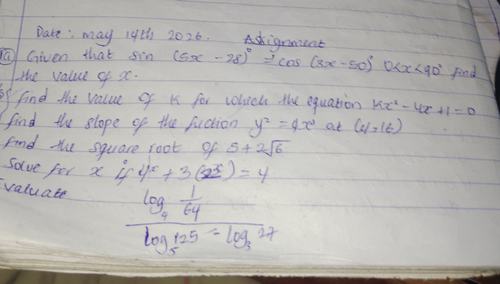 Date: may 14th 2026. Assignment
1a) Given that sin (5x - 28)° = cos (3x - 50)° 0<x<90° find
the value of x.
b) find the value of k for which the equation kx² - 4x + 1 = 0
find the slope of the fuction y² = 4x³ at (4, 16)
find the square root of 5 + 2√6
Solve for x if 4ˣ + 3(2ˣ) = 4
Evaluate
log₄ 1/64
log₅ 125 - log₃ 27